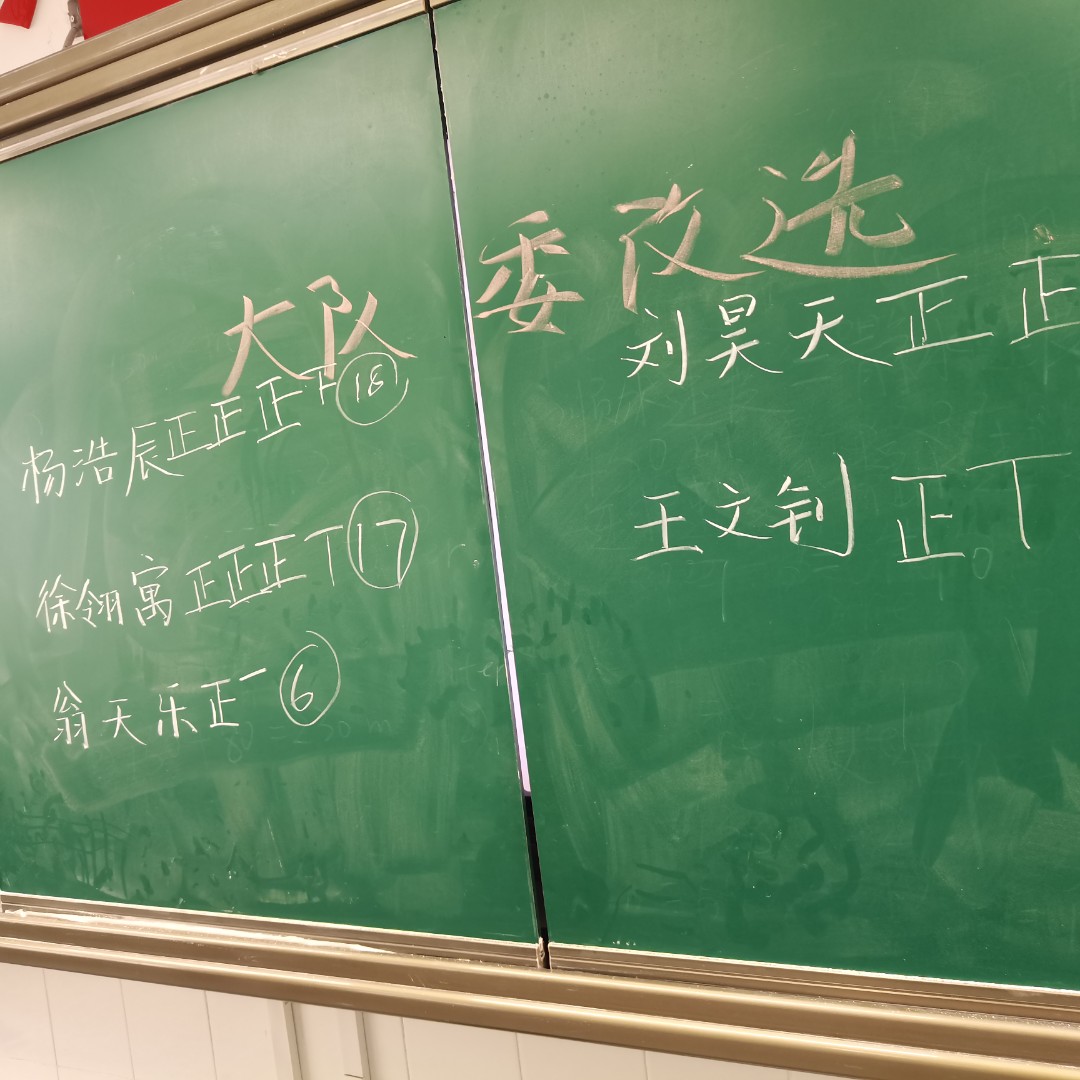 大队委改选
杨浩辰正正正下⑱
徐翎寓正正正丅⑰
翁天乐正一⑥
刘昊天正正
王文钊正丅